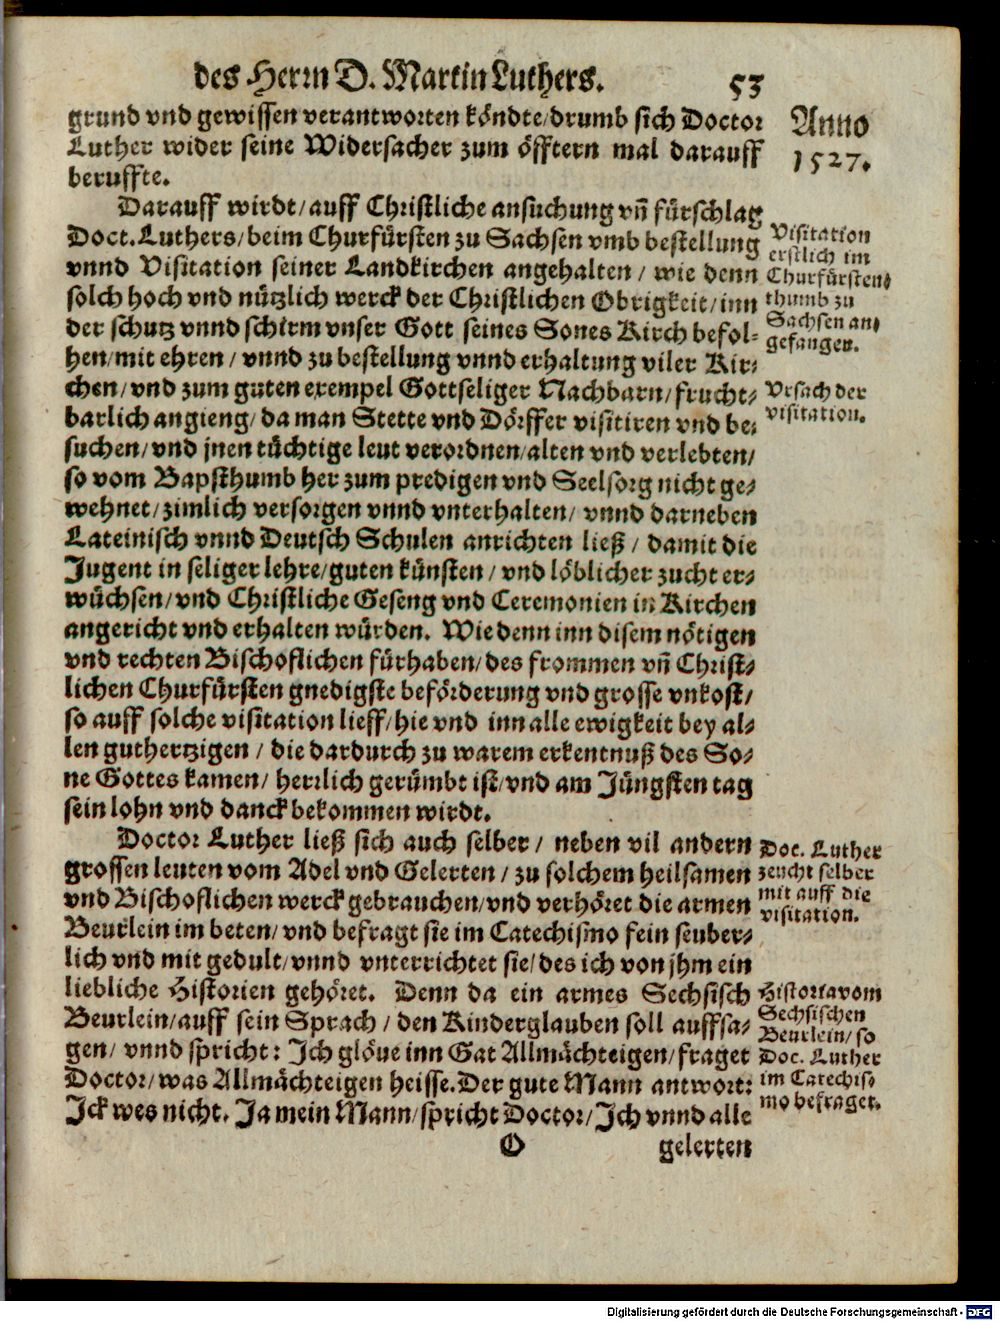 des Herrn D. Martin Luthers. 53
grund vnd gewissen verantworten köndte/drumb sich Doctor
Luther wider seine Widersacher zum öfftern mal darauff
beruffte.
Anno
1527.
Darauff wirdt/auff Christliche ansuchung vñ fürschlag
Doct.Luthers/beim Churfürsten zu Sachsen vmb bestellung
vnnd Visitation seiner Landkirchen angehalten/ wie denn
solch hoch vnd nützlich werck der Christlichen Obrigkeit/inn
der schutz vnnd schirm vnser Gott seines Sones Kirch befol-
hen/mit ehren/ vnnd zu bestellung vnnd erhaltung viler Kir-
chen/vnd zum guten exempel Gottseliger Nachbarn/frucht-
barlich angieng/da man Stette vnd Dörffer visitiren vnd be-
suchen/vnd jnen tüchtige leut verordnen/alten vnd verlebten/
so vom Bapsthumb her zum predigen vnd Seelsorg nicht ge-
wehnet/zimlich versorgen vnnd vnterhalten/ vnnd darneben
Lateinisch vnnd Deutsch Schulen anrichten ließ/ damit die
Jugent in seliger lehre/guten künsten/ vnd löblicher zucht er-
wüchsen/vnd Christliche Geseng vnd Ceremonien in Kirchen
angericht vnd erhalten würden. Wie denn inn disem nötigen
vnd rechten Bischoflichen fürhaben/des frommen vñ Christ-
lichen Churfürsten gnedigste beförderung vnd grosse vnkost/
so auff solche visitation lieff/hie vnd inn alle ewigkeit bey al-
len guthertzigen/ die dardurch zu warem erkentnuß des So-
ne Gottes kamen/ herrlich gerümbt ist/vnd am Jüngsten tag
sein lohn vnd danck bekommen wirdt.
Visitation
erstlich im
Churfürsten-
thumb zu
Sachsen an-
gefangen.
Vrsach der
visitation.
Doctor Luther ließ sich auch selber/ neben vil andern
grossen leuten vom Adel vnd Gelerten/ zu solchem heilsamen
vnd Bischoflichen werck gebrauchen/vnd verhöret die armen
Beurlein im beten/ vnd befragt sie im Catechismo fein seuber-
lich vnd mit gedult/vnnd vnterrichtet sie/des ich von jhm ein
liebliche Historien gehöret. Denn da ein armes Sechsisch
Beurlein/auff sein Sprach/ den Kinderglauben soll auffsa-
gen/ vnnd spricht: Ich glöue inn Gat Allmächteigen/fraget
Doctor/was Allmächteigen heisse.Der gute Mann antwort:
Ick wes nicht. Ja mein Mann/spricht Doctor/Ich vnnd alle
Doc. Luther
zeucht selber
mit auff die
visitation.
Historia vom
Sechsischen
Beurlein/ so
Doc. Luther
im Catechis-
mo befraget.
O gelerten
Digitalisierung gefördert durch die Deutsche Forschungsgemeinschaft - DFG